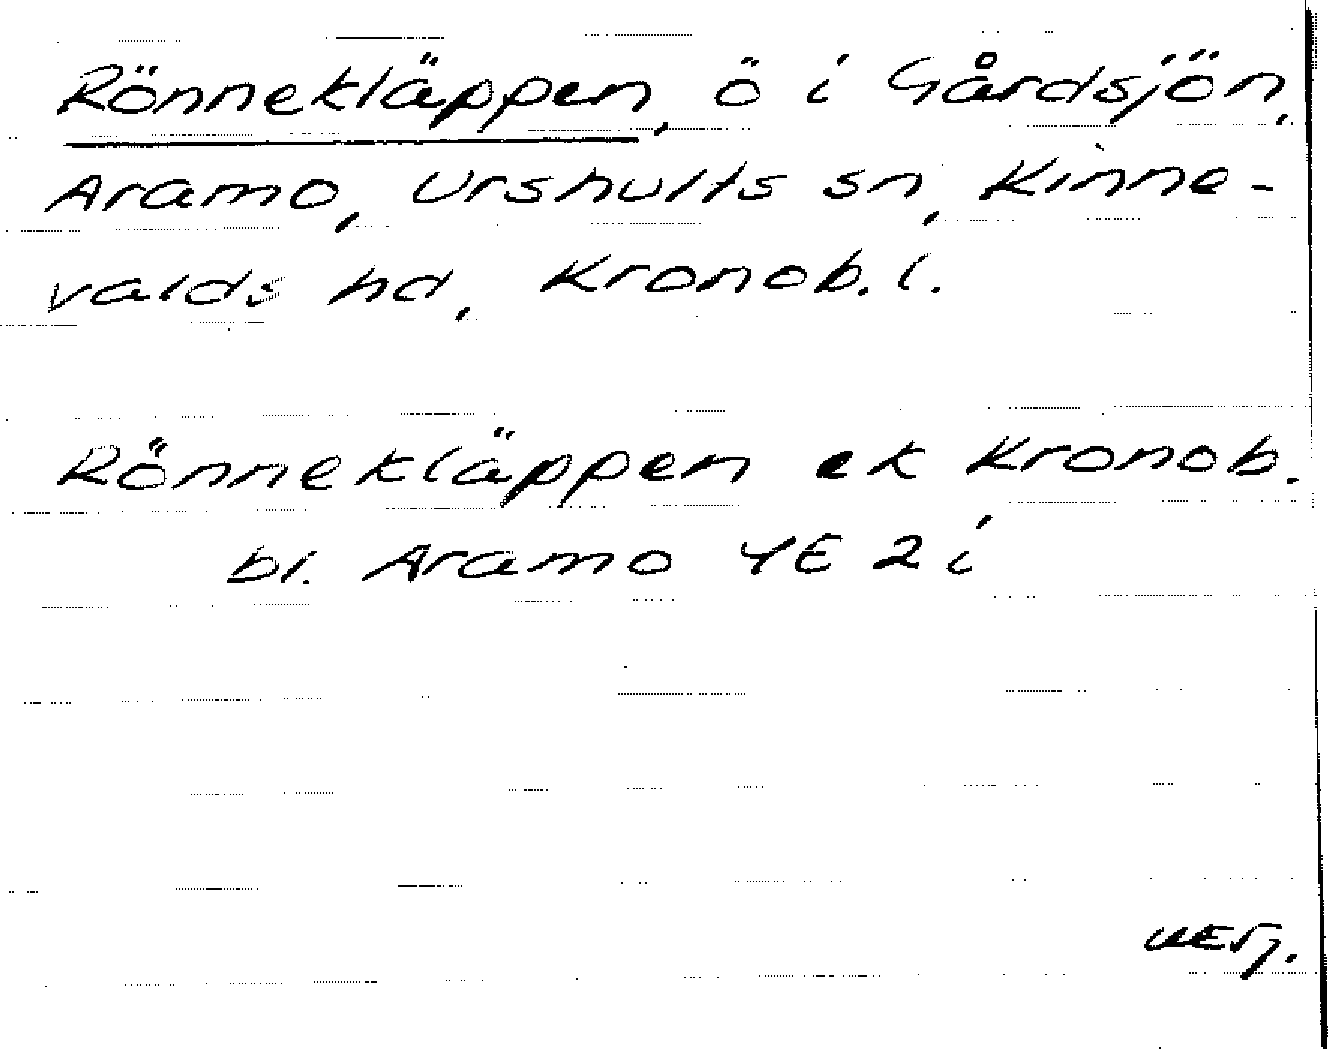 Rönnekläppen, ö i Gårdsjön,
Aramo, Urshults sn, Kinne-
valds hd, Kronob. l.
Rönnekläppen ek Kronob.
bl. Aramo 4E 2i